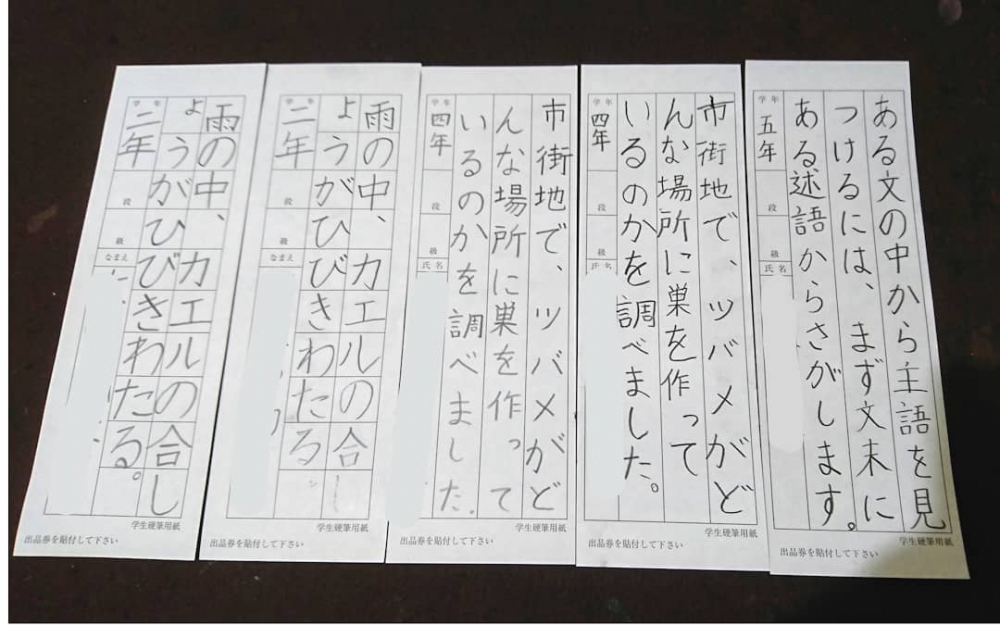 ある文の中から主語を見
つけるには、まず文末に
ある述語からさがします。
学年 五年 段 級 氏名
学生硬筆用紙
出品券を貼付して下さい
市街地で、ツバメがど
んな場所に巣を作って
いるのかを調べました。
学年 四年 段 級 氏名
学生硬筆用紙
出品券を貼付して下さい
市街地で、ツバメがど
んな場所に巣を作って
いるのかを調べました.
学年 四年 段 級 氏名
学生硬筆用紙
出品券を貼付して下さい
雨の中、カエルの合し
ょうがひびきわたる
学年 三年 段 級 なまえ
学生硬筆用紙
出品券を貼付して下さい
雨の中、カエルの合し
ょうがひびきわたる。
学年 三年 段 級 なまえ
学生硬筆用紙
出品券を貼付して下さい